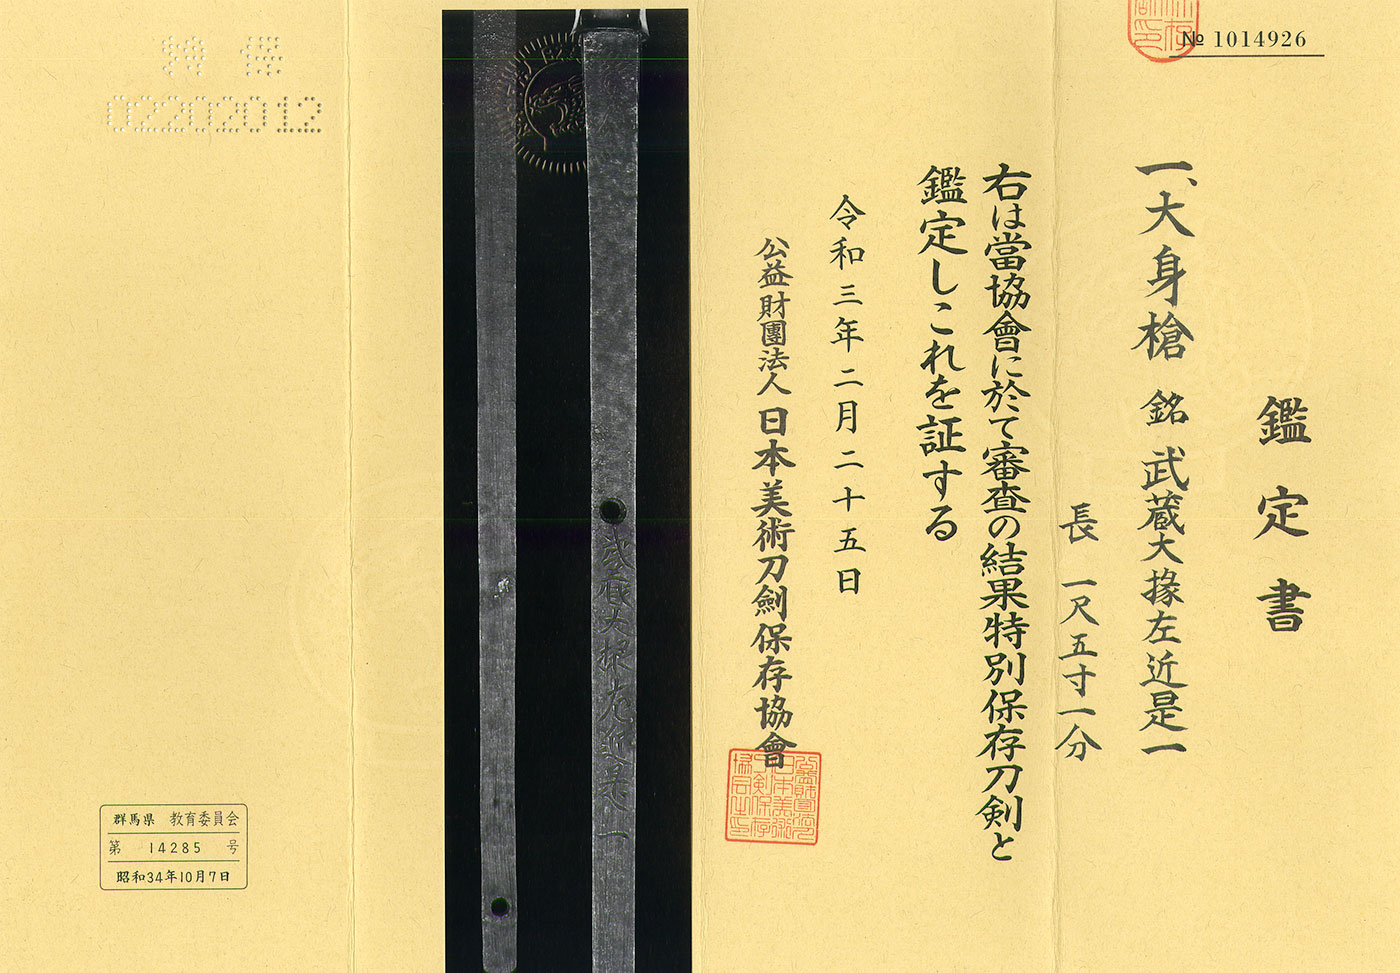 № 1014926
鑑定書
一、大身槍 銘 武蔵大掾左近是一
長 一尺五寸一分
右は當協會に於て審査の結果特別保存刀剣と
鑑定しこれを証する
令和三年二月二十五日
公益財團法人 日本美術刀劍保存協會
武蔵大掾左近是一
特保
02202012
群馬県 教育委員会
第 14285 号
昭和34年10月7日